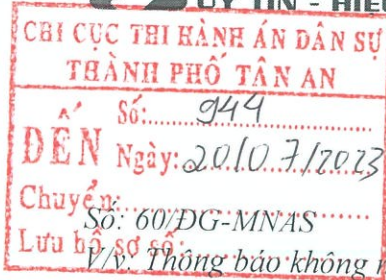 UY TÍN - HIỆU
CHI CỤC THI HÀNH ÁN DÂN SỰ
THÀNH PHỐ TÂN AN
ĐẾN
Số:.....944
Ngày: 20/0.7/2023
Chuyển:
Số: 60/ĐG-MNAS
Lưu hồ sơ số
V/v: Thông báo không